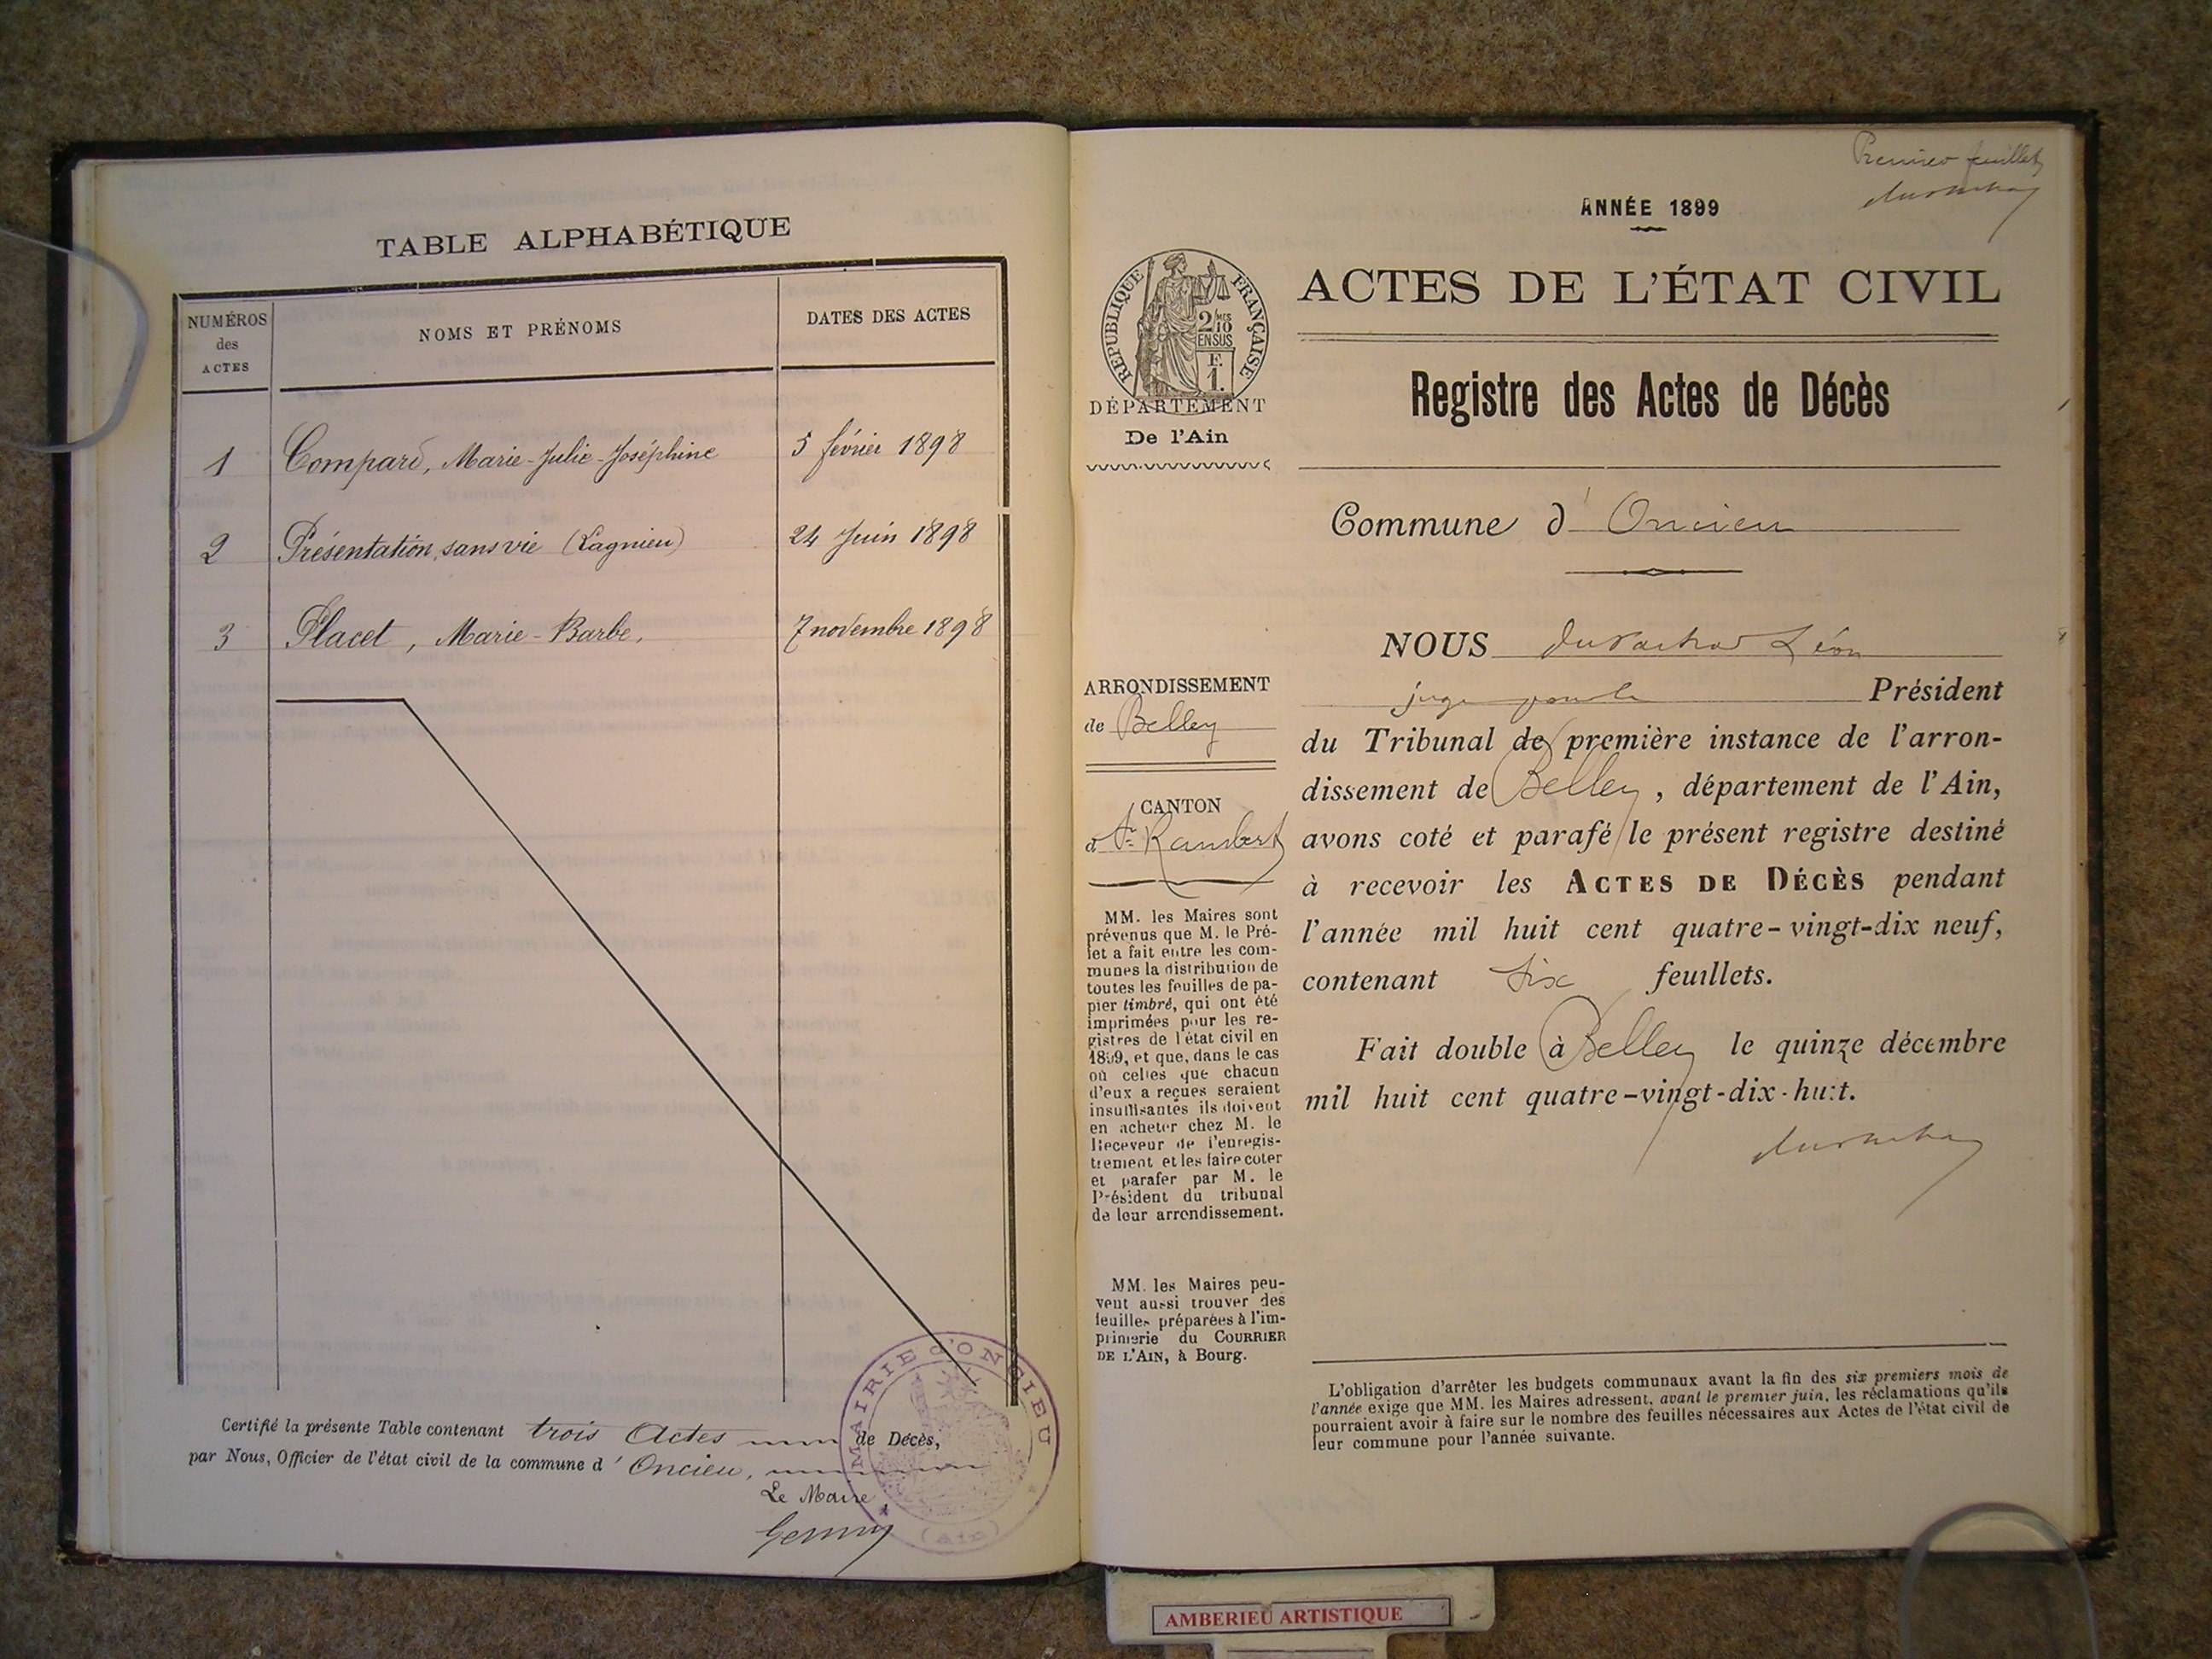 TABLE ALPHABÉTIQUE
NUMÉROS
des
ACTES
NOMS ET PRÉNOMS
DATES DES ACTES
1 Compard, Marie-Julie-Joséphine 5 février 1898
2 Présentation sans vie (Lagnieu) 24 Juin 1898
3 Placet, Marie-Barbe, 7 novembre 1898
Certifié la présente Table contenant trois Actes de Décès,
par Nous, Officier de l'état civil de la commune d'Oncieu,
Le Maire,
MAIRIE D'ONCIEU
(Ain)
Premier feuillet
ANNÉE 1899
RÉPUBLIQUE FRANÇAISE
2/10MES
EN SUS
F.
1.
DÉPARTEMENT
De l'Ain
ACTES DE L'ÉTAT CIVIL
Registre des Actes de Décès
Commune d'Oncieu
ARRONDISSEMENT
de Belley
CANTON
d St Rambert
MM. les Maires sont
prévenus que M. le Pré-
fet a fait entre les com-
munes la distribution de
toutes les feuilles de pa-
pier timbré, qui ont été
imprimées pour les re-
gistres de l'état civil en
1899, et que, dans le cas
où celles que chacun
d'eux a reçues seraient
insuffisantes ils doivent
en acheter chez M. le
Receveur de l'enregis-
trement et les faire coter
et parafer par M. le
Président du tribunal
de leur arrondissement.
MM. les Maires peu-
vent aussi trouver des
feuilles préparées à l'im-
primerie du COURRIER
DE L'AIN, à Bourg.
NOUS Léon
juge pour le Président
du Tribunal de première instance de l'arron-
dissement de Belley, département de l'Ain,
avons coté et parafé le présent registre destiné
à recevoir les ACTES DE DÉCÈS pendant
l'année mil huit cent quatre-vingt-dix neuf,
contenant six feuillets.
Fait double à Belley le quinze décembre
mil huit cent quatre-vingt-dix-huit.
L'obligation d'arrêter les budgets communaux avant la fin des six premiers mois de
l'année exige que MM. les Maires adressent, avant le premier juin, les réclamations qu'ils
pourraient avoir à faire sur le nombre des feuilles nécessaires aux Actes de l'état civil de
leur commune pour l'année suivante.
AMBERIEU ARTISTIQUE